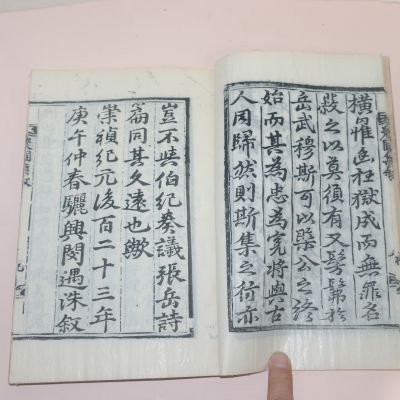 橫罹枉獄成而無罪名
殺之以莫須有又髣髴於
岳武穆斯可以槩公之終
始而其為忠為寃將與古
人同歸然則斯集之行亦
豈不與伯紀奏議張岳詩
篇同其久遠也歟
崇禎紀元後百二十三年
庚午仲春驪興閔遇洙叙